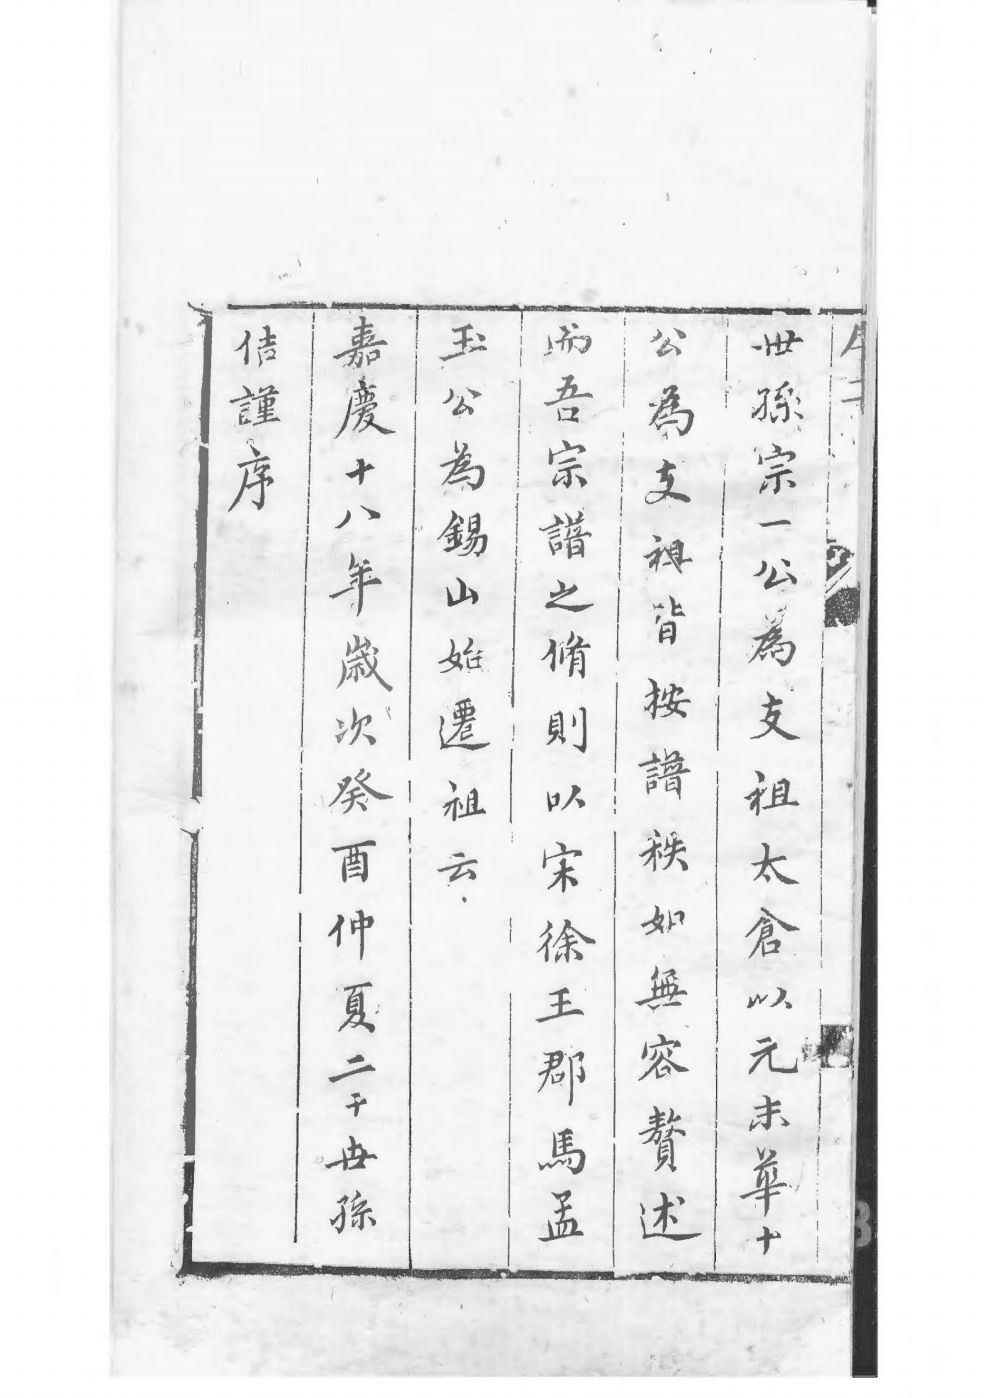 世孫宗一公為支祖太倉以元末華十
公為支祖皆按譜秩如無容贅述
而吾宗譜之脩則以宋徐王郡馬孟
玉公為錫山始遷祖云
嘉慶十八年歲次癸酉仲夏二十世孫
佶謹序